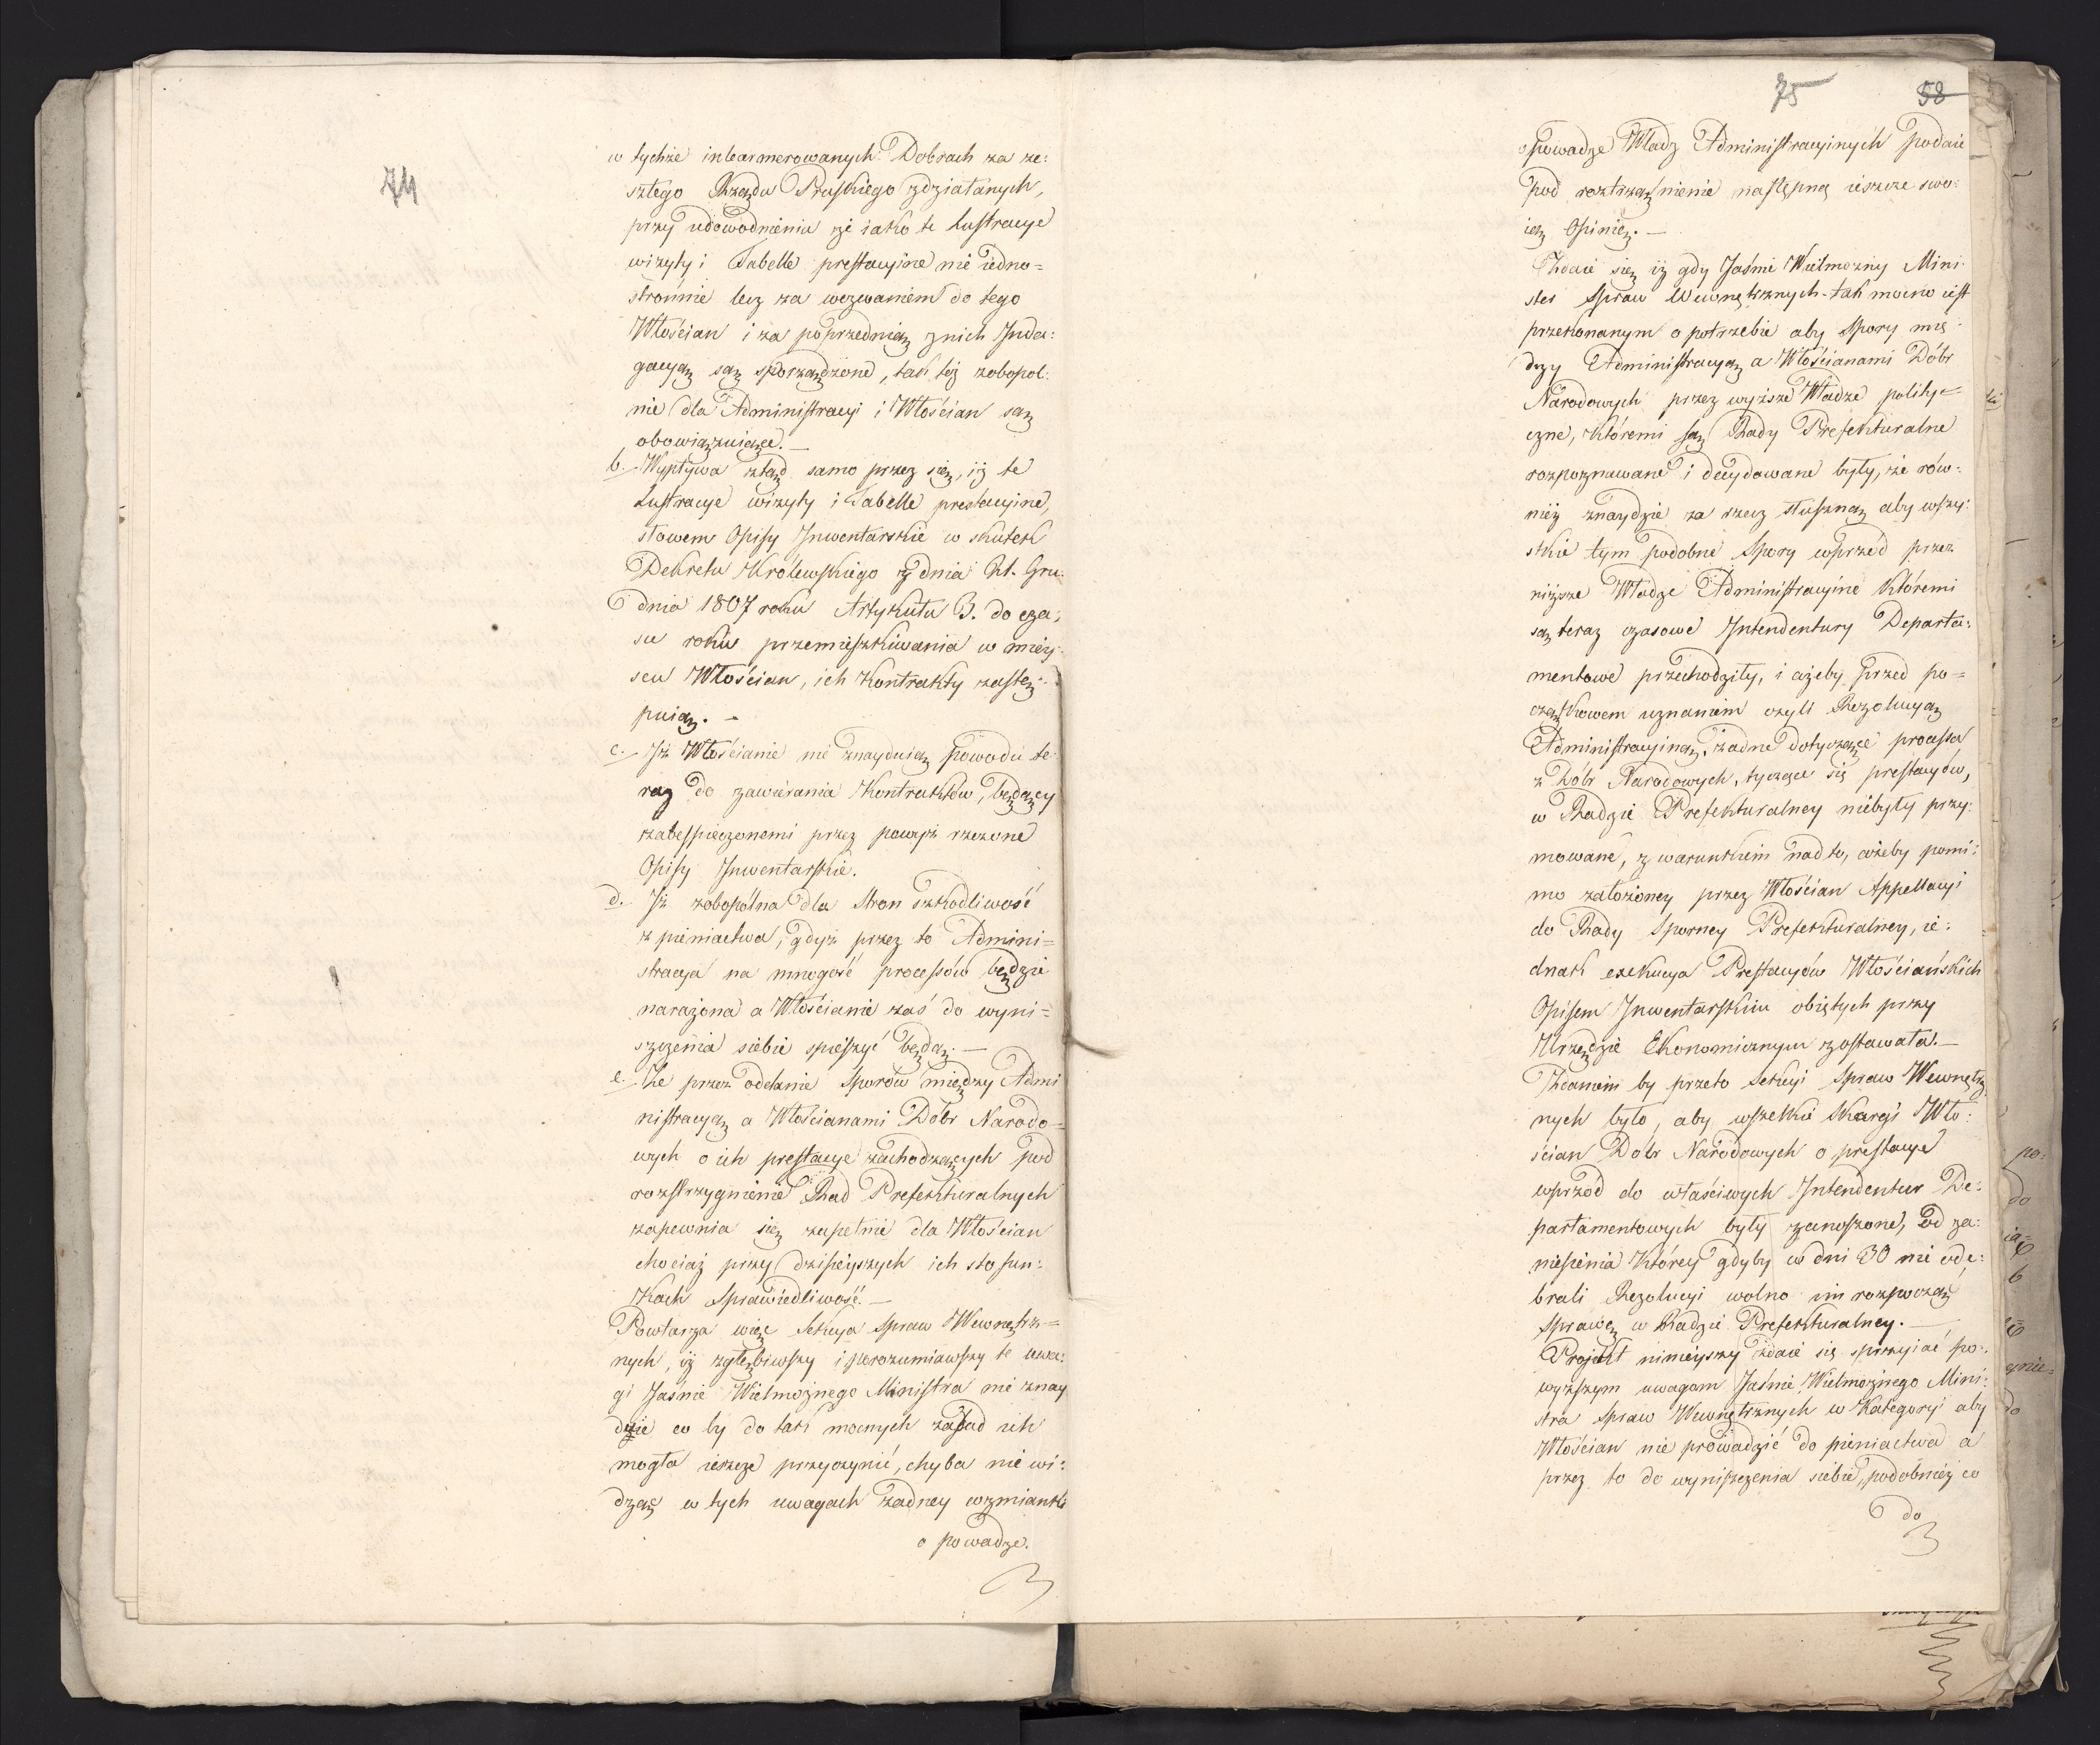 74
w tychże inkarmerowanych Dobrach za ze:
szłego Rządu Pruskiego zdziałanych,
przy udowodnieniu że iako te Lustracye
wizyty i Tabelle prestacyine nie iedno=
stronnie lecz za wezwaniem do tego
Włościan i za poprzednią z nich Inda:
gacyą są sporządzone, tak też zobopol:
nie dla Administracyi i Włościan są
obowiązuiące. —
b. Wypływa ztąd samo przez się, iż te
Lustracye wizyty i Tabelle prestacyine,
słowem Opisy Inwentarskie w skutek
Dekretu Królewskiego z dnia 21. Gru:
dnia 1807 roku Artykułu 3. do cza:
su roku przemieszkiwania w miey:
scu Włościan, ich Kontrakty zastę:
puią. —
c. Iż Włościanie nie znayduią powodu te:
raz do zawierania Kontraktów, będący
zabespieczonemi przez powyż rzeczone
Opisy Inwentarskie.
d. Iż zobopólna dla Stron szkodliwość
z pieniactwa, gdyż przez to Admini=
stracya na mnogość processów będzie
narażona a Włościanie zaś do wyni=
szczenia siebie spieszyć będą. —
e. Że przez oddanie Sporów między Admi
nistracyą a Włościanami Dóbr Narodo=
wych o ich prestacye zachodzących pod
rozstrzygnienie Rad Prefekturalnych
zapewnia się zupełnie dla Włościan
chociaż przy dzisieyszych ich stosun:
kach Sprawiedliwość. —
Powtarza więc Sekcya Spraw Wewnętrz=
nych, iż zgłębiwszy i zrozumiawszy te uwa:
gi Jaśnie Wielmożnego Ministra nie znay
duie co by do tak mocnych zasad ich
mogła ieszcze przyczynić, chyba nie wi:
dząc w tych uwagach żadney wzmianki
o powadze.
75
58
o powadze Władz Administracyinych podaie
pod roztrząśnienie następną ieszcze swo:
ią Opinię. —
Zdaie się iż gdy Jaśnie Wielmożny Mini:
ster Spraw Wewnętrznych tak mocno iest
przekonanym o potrzebie aby Spory mię:
dzy Administracyą a Włościanami Dóbr
Narodowych przez wyższe Władze polity=
czne, któremi są Rady Prefekturalne
rozpoznawane i decydowane były, że rów:
nież znaydzie za rzecz słuszną aby wszy:
stkie tym podobne Spory wprzód przez
niższe Władze Administracyine któremi
są teraz czasowe Intendentury Departa:
mentowe przechodziły, i ażeby przed po=
czątkowem uznaniem czyli Rezolucyą
Administracyiną, żadne dotyczące processa
z Dóbr Narodowych, tyczące się prestacyów,
w Radzie Prefekturalney niebyły przy:
mowane, z warunkiem nad to, ażeby pomi:
mo założoney przez Włościan Appellacyi
do Rady Sporney Prefekturalney, ie:
dnak exekucya Prestacyów Włościańskich
Opisem Inwentarskim obiętych przy
Urzędzie Ekonomicznym zostawała. —
Zdaniem by przeto Sekcyi Spraw Wewnętrz
nych było, aby wszelkie Skargi Wło:
ścian Dóbr Narodowych o prestacye
wprzód do właściwych Intendentur De:
partamentowych były zanoszone, od za:
niesienia którey gdyby w dni 30 nie ode:
brali Rezolucyi wolno im rozpocząć
Sprawę w Radzie Prefekturalney. —
Projekt ninieyszy zdaie się sprzyiać po:
wyższym uwagom Jaśnie Wielmożnego Mini:
stra Spraw Wewnętrznych w Kategoryi aby
Włościan nie prowadzić do pieniactwa a
przez to do wyniszczenia siebie, podobnież co
do